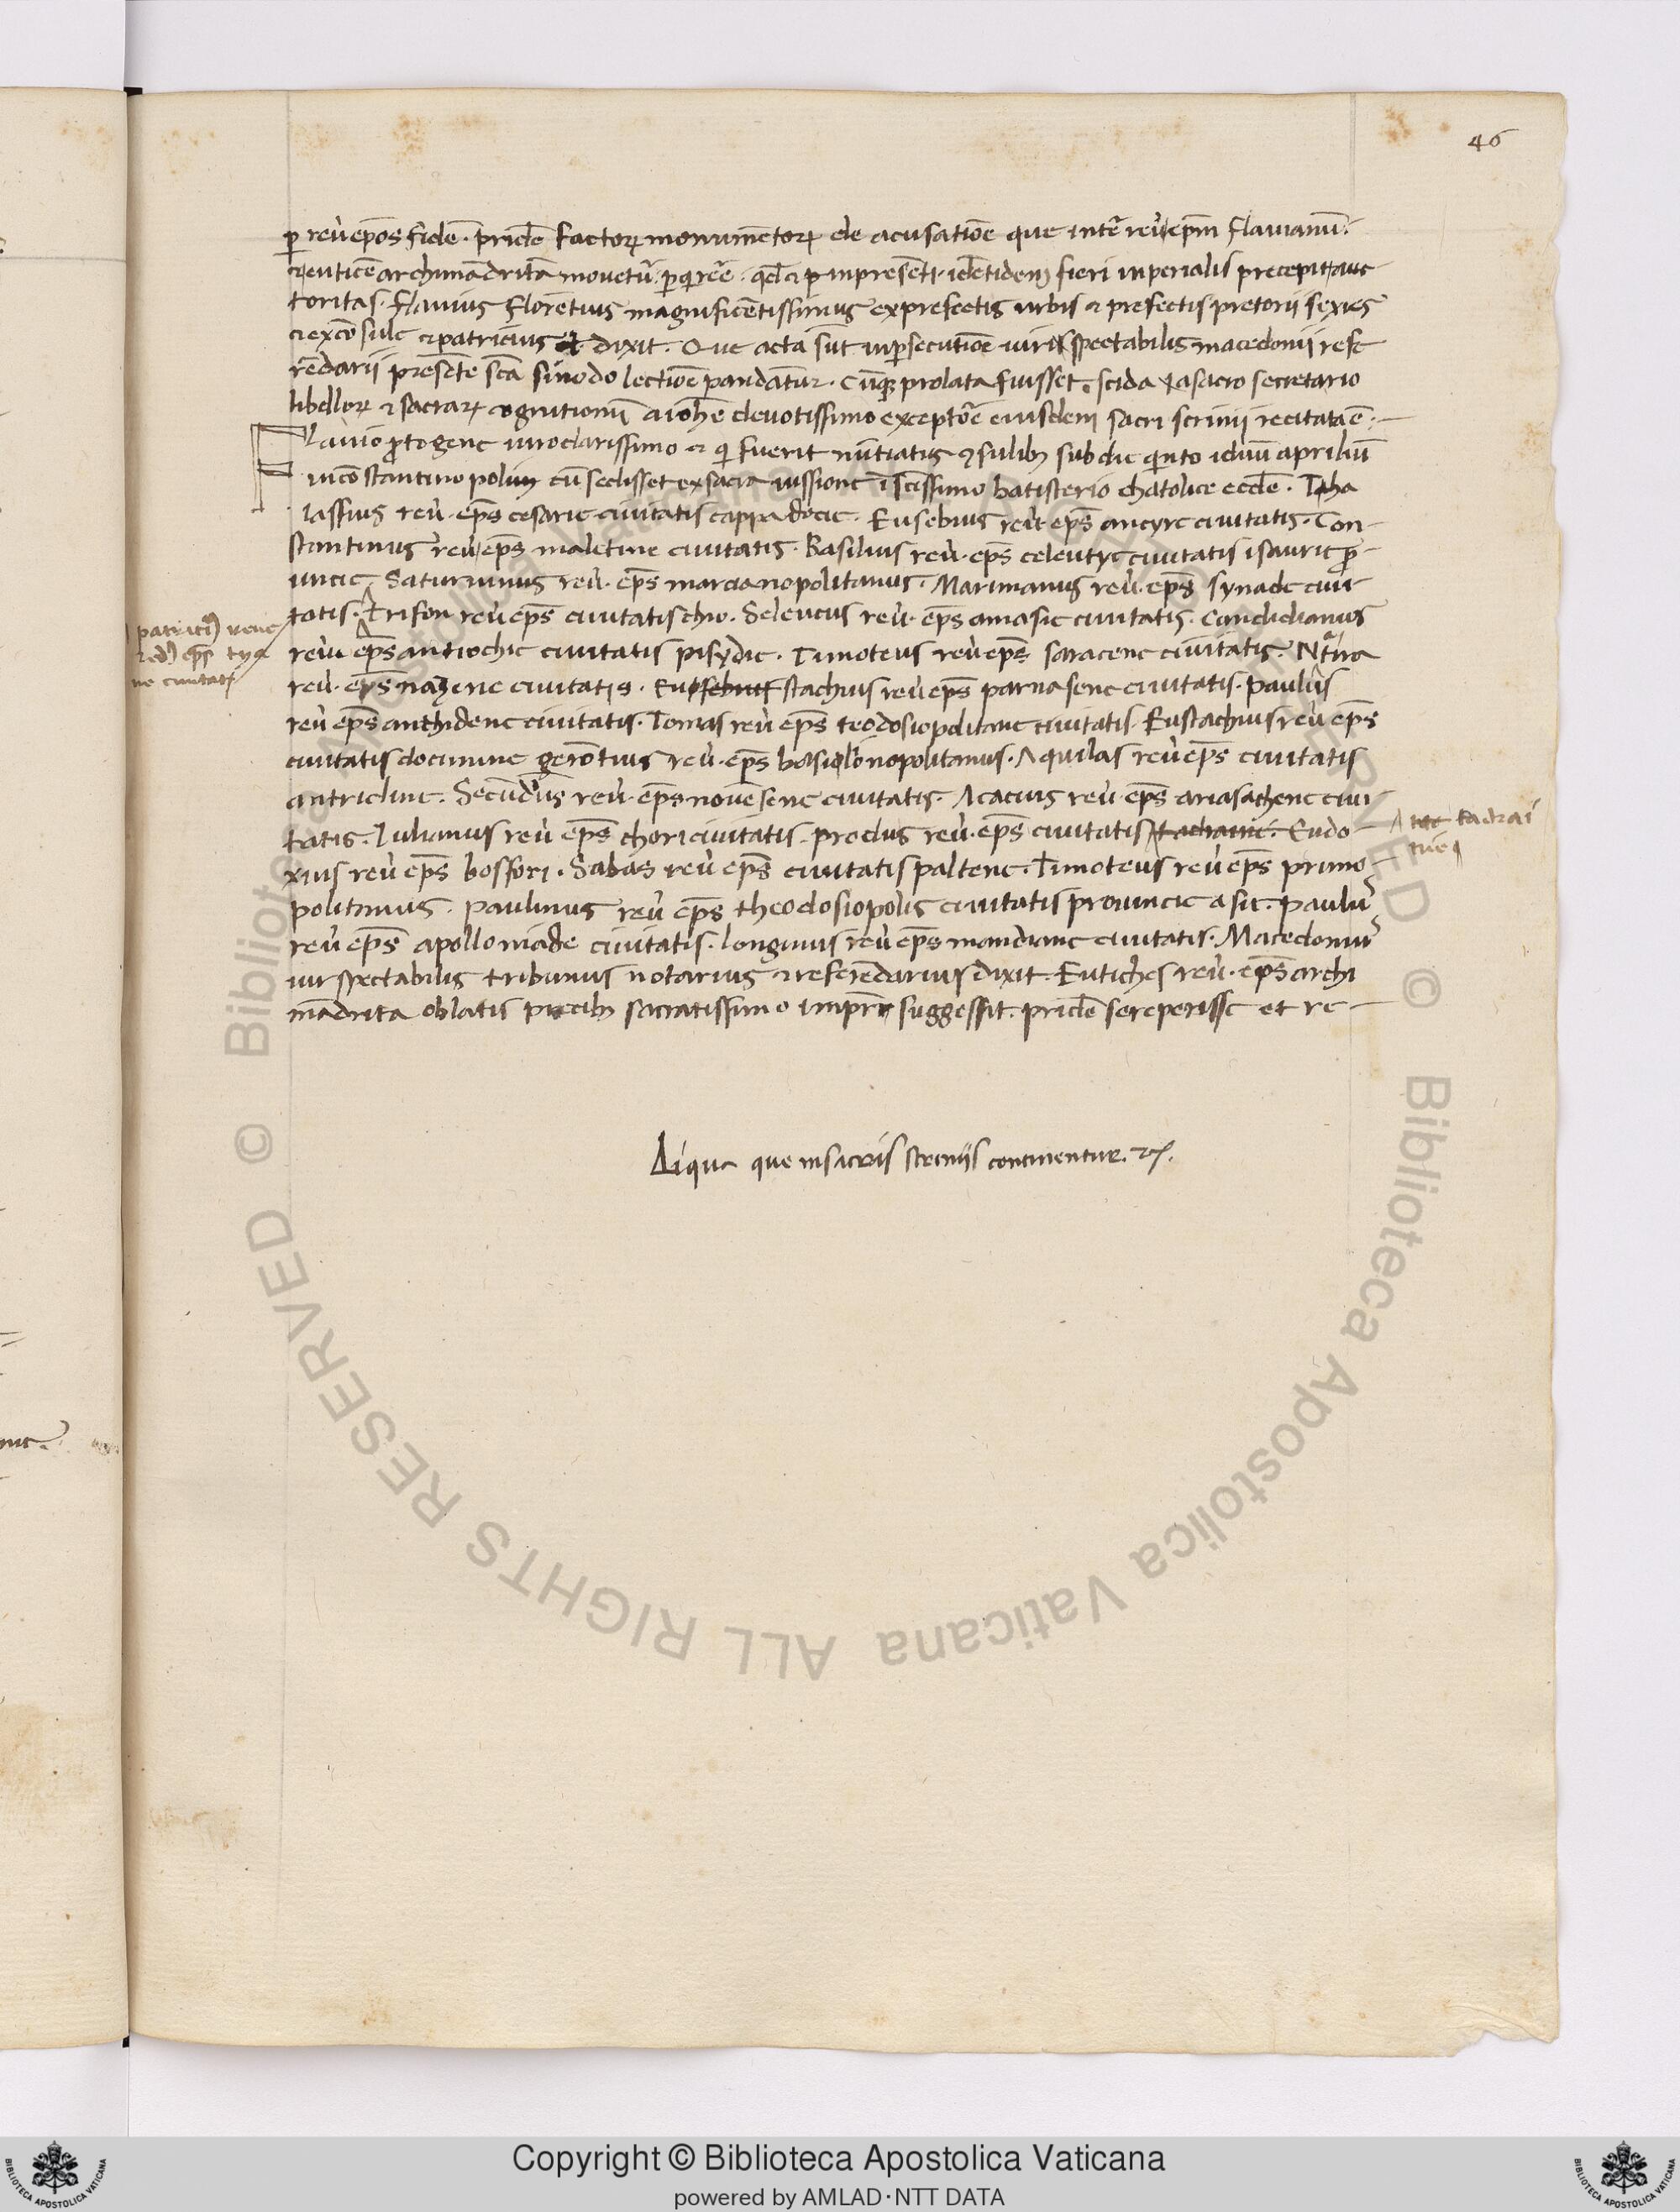 46
p reu epos fide. pride factoꝝ monumetoꝝ de acusatioe que inter reu epm flauianu.
⁊ euticē archimādritā mouetu. pq̄rere. qd ⁊ p inpresenti. idētidem fieri inperialis precepit auc
toritas. flauius florētius magnificētissimus exprefectis urbis ⁊ prefectis pretorii sexies
⁊ excōsule ⁊ patricius dixit. Que acta sūt inpsecutiōe uiri spectabilis macedonii refe
rēdarii presēte scā sinodo lectiōe pandātur. cūq; prolata fuisset scida a sacro secretario
libelloꝝ ⁊ sacraꝝ cognitionū a iohē deuotissimo exceptōre eiusdem sacri scrinii recitata ē
Flauio protogene uiro clarissimo ⁊ q fuerit nūtiatis ꝯsulib; sub die qinto iduū apriliū
in cōstantinopolim cū sedisset ex sacra iussione ī scissimo batisterio chatolice eccle. Tha
lassius reu. eps cesarie ciuitatis cappadocie. Eusebius reu. eps ancyre ciuitatis. Con
stantinus reu eps maletine ciuitatis. Basilius reu. eps celeutye ciuitatis isaurie pro
uincie. Saturninus reu. eps marcianopolitanus. Marinianus reu. eps synade ciui
tatis. Trifon reu eps ciuitatis chio. Seleucus reu. eps amasie ciuitatis. Candidianus
patrici9 uene
red9 eps tya
ne ciuitatis
reu eps antiochie ciuitatis pisydie. Timoteus reu eps saracene ciuitatis. Natira
reu. eps nazene ciuitatis. Eustachius reu eps parnasene ciuitatis. Paulus
reu eps anthidene ciuitatis. Tomas reu eps teodosiopolitane ciuitatis. Eustachius reu eps
ciuitatis docimine gerōtius reu. eps basiolinopolitanus. Aquilas reu eps ciuitatis
antridine. Secūdīus reu. eps nouēsene ciuitatis. Acacius reu. eps ariasathene ciui
tatis. Iulianus reu eps chori ciuitatis. proclus reu. eps ciuitatis tadranie. Eudo
tadrai
tine
xius reu eps bosfori. Sabas reu eps ciuitatis paltene. Timoteus reu eps primo
politanus. Paulinus reu eps theodosiopolis ciuitatis prouincie asie. Paulus
reu eps apolloniade ciuitatis. longinus reu eps mandrine ciuitatis. Macedonius
uir spectabilis tribunus notarius ⁊ referēdarius dixit. Eutiches reu. eps archi
mādrita oblatis precib; sacratissimo impri suggessit. pride se reperisse et re
Aiqua que in sacris scriniis continentur. ⁊c.
© Biblioteca Apostolica Vaticana ALL RIGHTS RESERVED
Copyright © Biblioteca Apostolica Vaticana
powered by AMLAD·NTT DATA
BIBLIOTECA APOSTOLICA VATICANA
BIBLIOTECA APOSTOLICA VATICANA